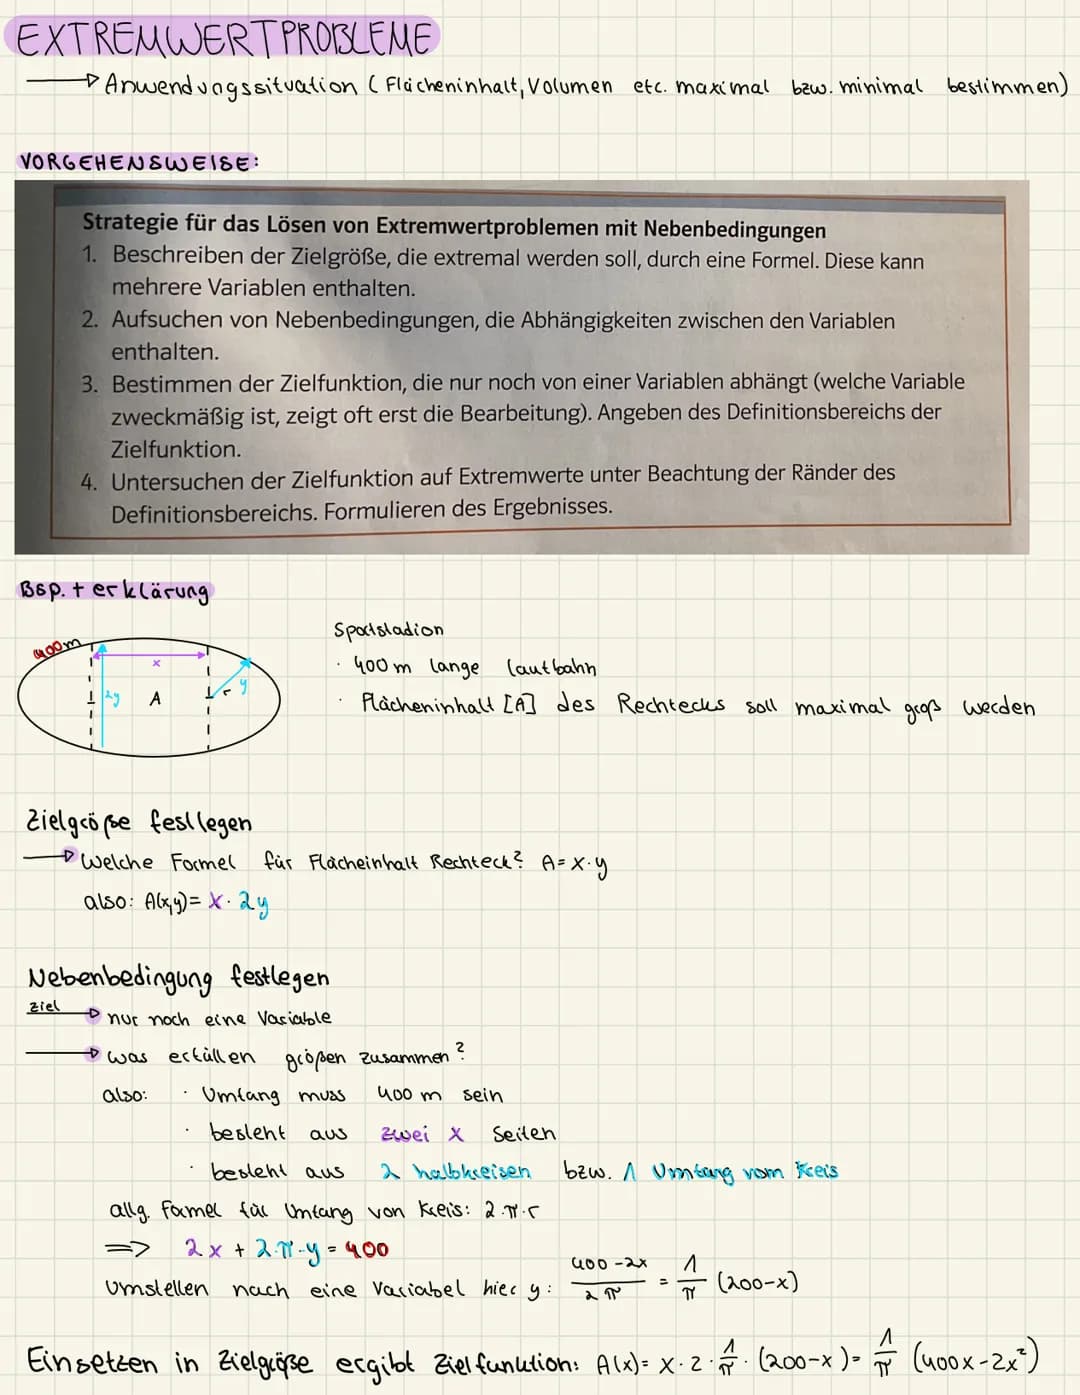 EXTREMWERTPROBLEME
→ Anwendungssituation (Flächeninhalt, Volumen etc. maximal bzw. minimal bestimmen)
VORGEHENSWEISE:
Strategie für das Lösen von Extremwertproblemen mit Nebenbedingungen
1. Beschreiben der Zielgröße, die extremal werden soll, durch eine Formel. Diese kann
mehrere Variablen enthalten.
2. Aufsuchen von Nebenbedingungen, die Abhängigkeiten zwischen den Variablen
enthalten.
3. Bestimmen der Zielfunktion, die nur noch von einer Variablen abhängt (welche Variable
zweckmäßig ist, zeigt oft erst die Bearbeitung). Angeben des Definitionsbereichs der
Zielfunktion.
4. Untersuchen der Zielfunktion auf Extremwerte unter Beachtung der Ränder des
Definitionsbereichs. Formulieren des Ergebnisses.
Bsp. + erklärung
400m
x
2y
A
r
y
Sportstadion
· 400 m lange Laufbahn
· Flächeninhalt [A] des Rechtecks soll maximal groß werden
Zielgröße festlegen
→ Welche Formel für Flächeinhalt Rechteck? A = x·y
also: A(x,y) = x · 2y
Nebenbedingung festlegen
Ziel → nur noch eine Variable
→ was erfüllen größen zusammen?
also: · Umfang muss 400 m sein
· besteht aus zwei x Seiten
· besteht aus 2 halbkreisen bzw. 1 Umfang vom Kreis
allg. Formel für Umfang von Kreis: 2·π·r
=> 2x + 2·π·y = 400
Umstellen nach eine Variabel hier y: (400-2x)/(2π) = 1/π (200-x)
Einsetzen in Zielgröße ergibt Zielfunktion: A(x) = x·2·1/π·(200-x) = 1/π (400x-2x²)